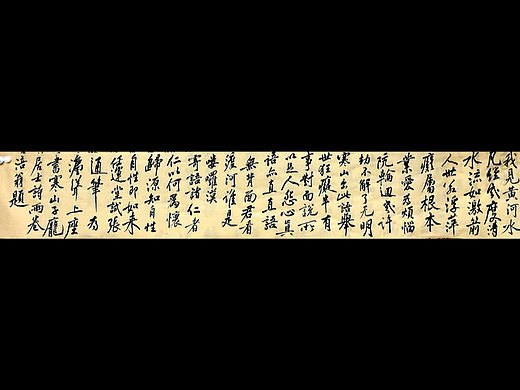 我見黃河水
凡經幾度清
水流如激箭
人世若浮萍
癡屬根本
業愛為煩惱
坑輪迴幾許
劫不解了無明
寒山出此語舉
世狂癡半有
事對面說所
以足人怨心真
語亦直直語
無背面君看
渡河誰是
嘍囉漢
寄語諸仁者
仁以何為懷
歸源知自性
自性即如來
任運堂試張
通筆為
上座
書寒山子龐
居士詩兩卷
涪翁題